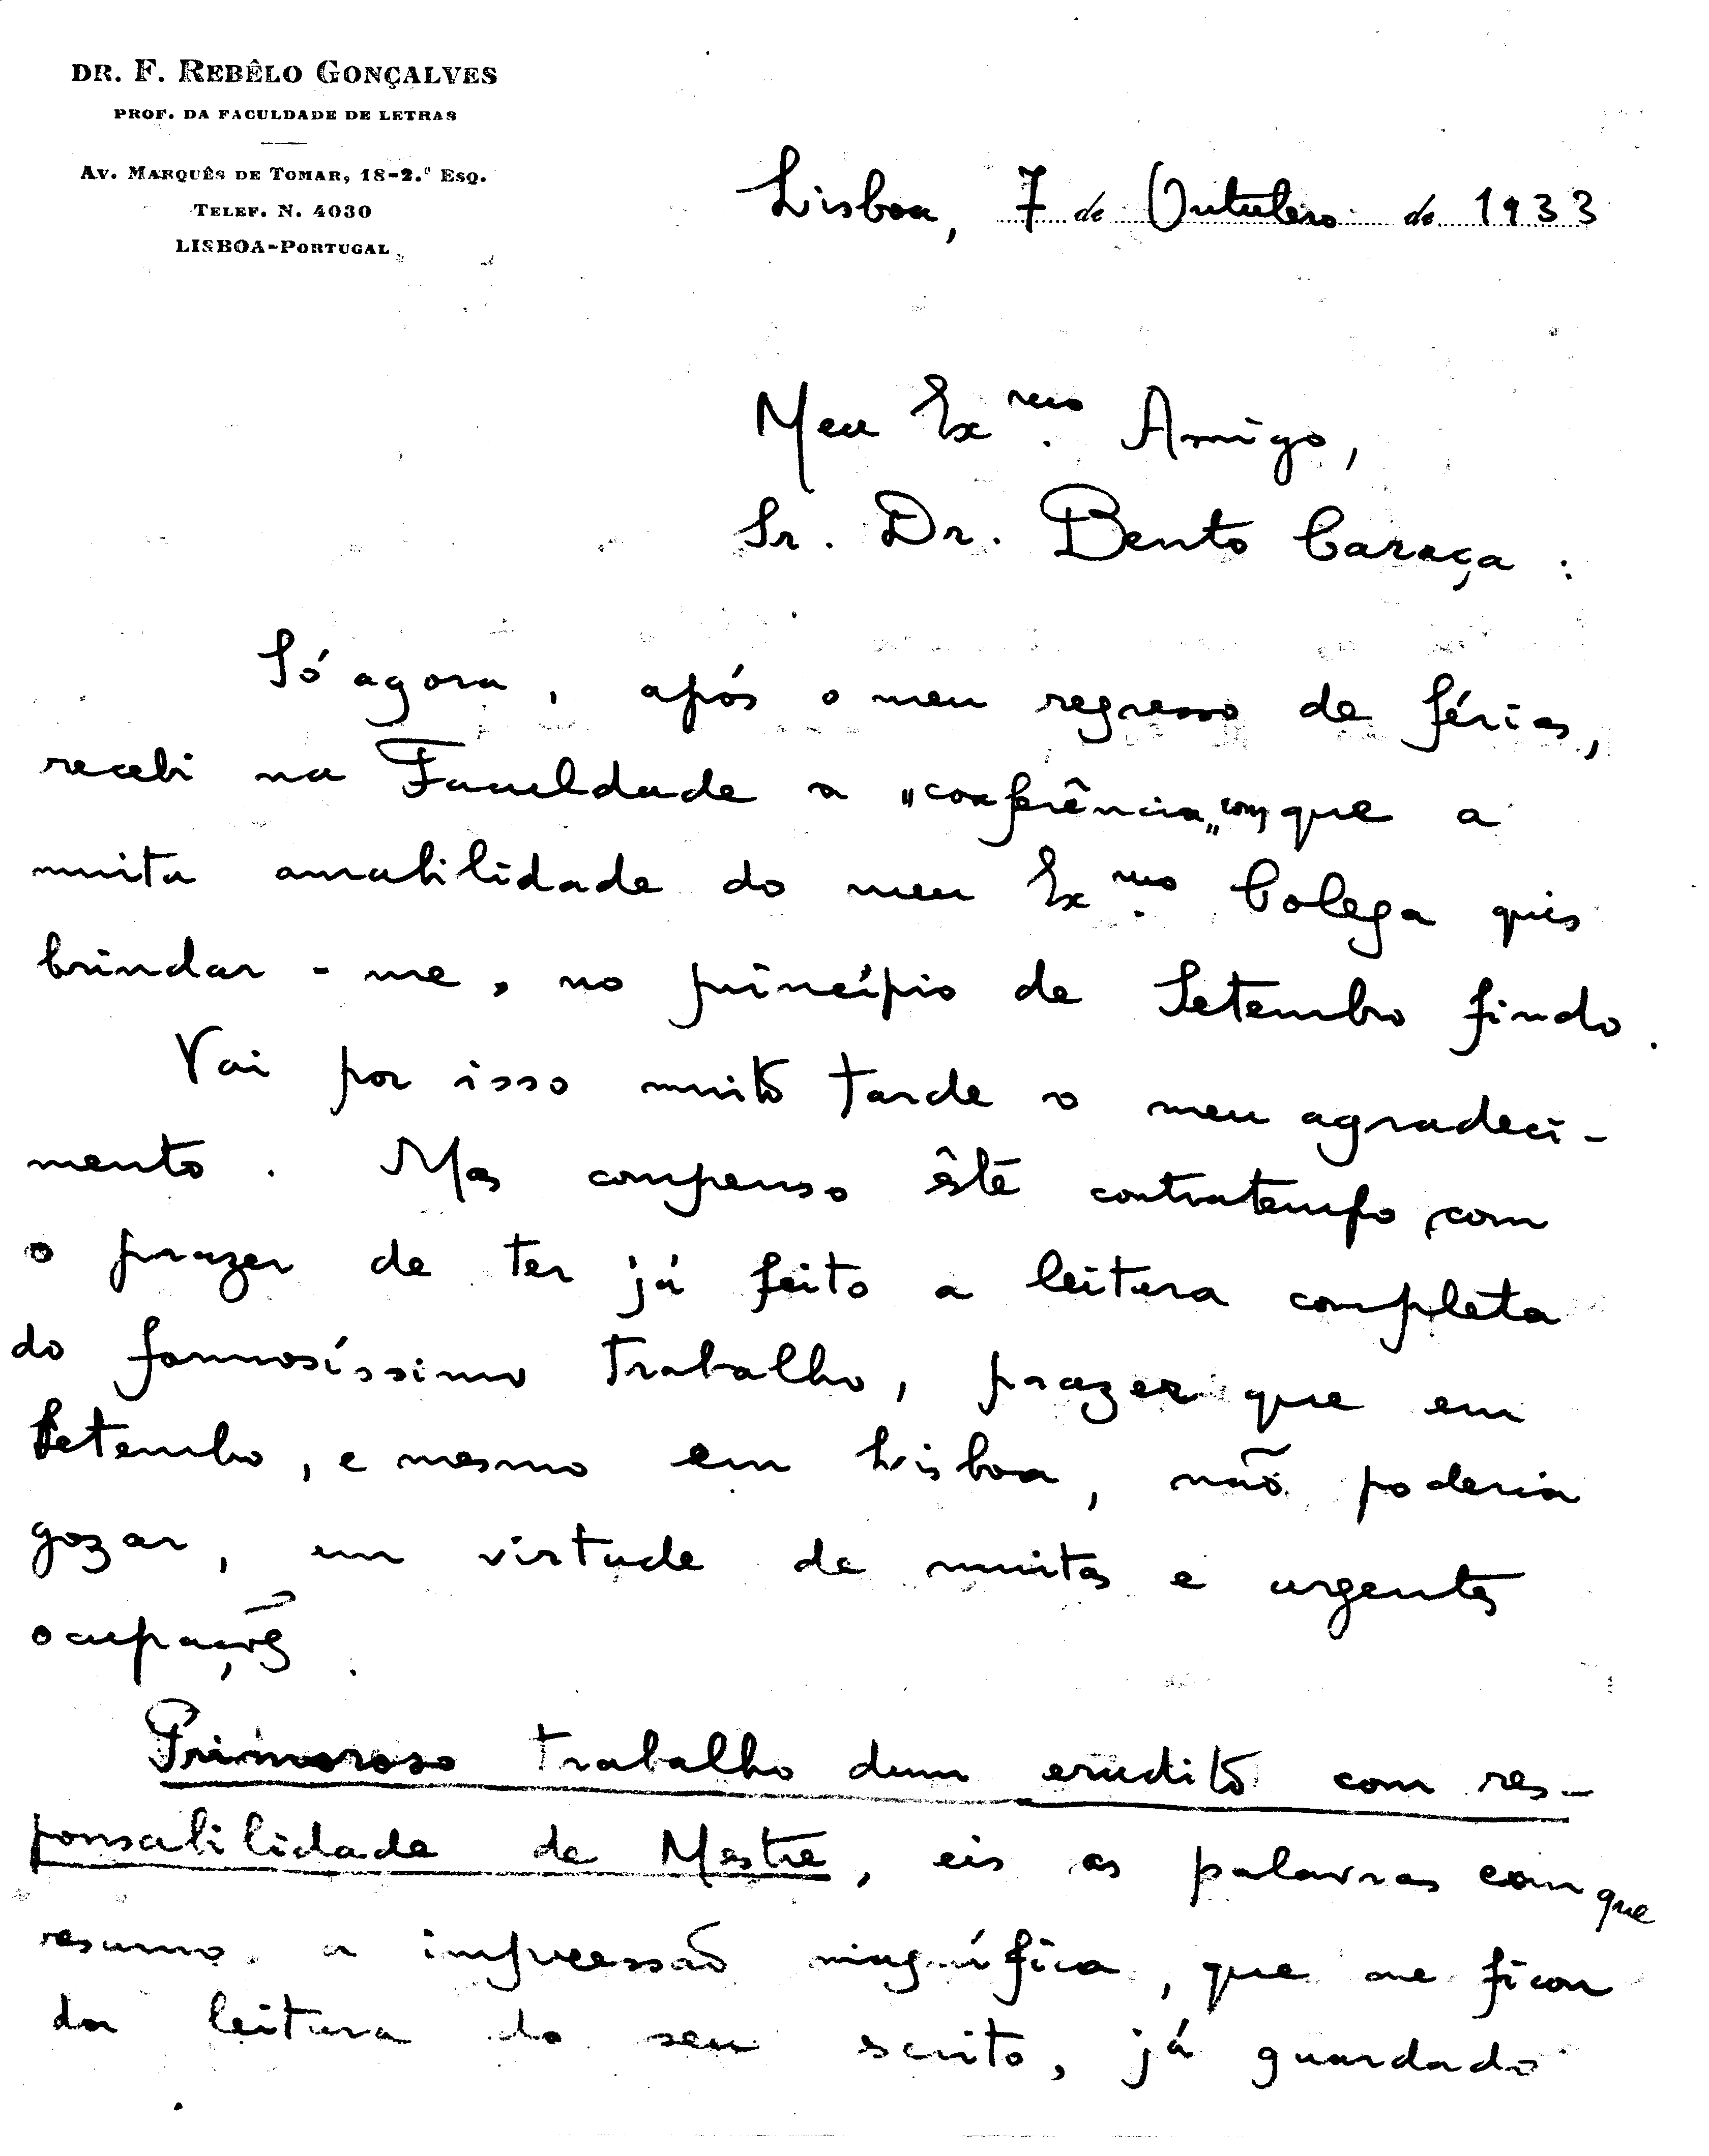 DR. F. REBÊLO GONÇALVES
PROF. DA FACULDADE DE LETRAS
AV. MARQUÊS DE TOMAR, 18-2.º ESQ.
TELEF. N. 4030
LISBOA-PORTUGAL
Lisboa, 7 de Outubro de 1933
Meu Ex.mo Amigo,
Sr. Dr. Bento Caraça :
Só agora, após o meu regresso de férias,
recebi na Faculdade a "conferência" com que a
muita amabilidade do meu Ex.mo Colega quis
brindar-me, no princípio de Setembro findo.
Vai por isso muito tarde o meu agradeci-
mento. Mas compenso êste contratempo com
o prazer de ter já feito a leitura completa
do formosíssimo trabalho, prazer que em
Setembro, e mesmo em Lisboa, não poderia
gozar, em virtude de muitas e urgentes
ocupações.
Primoroso trabalho dum erudito com res-
ponsabilidade de Mestre, eis as palavras com que
resumo a impressão magnífica, que me ficou
da leitura do seu escrito, já guardado